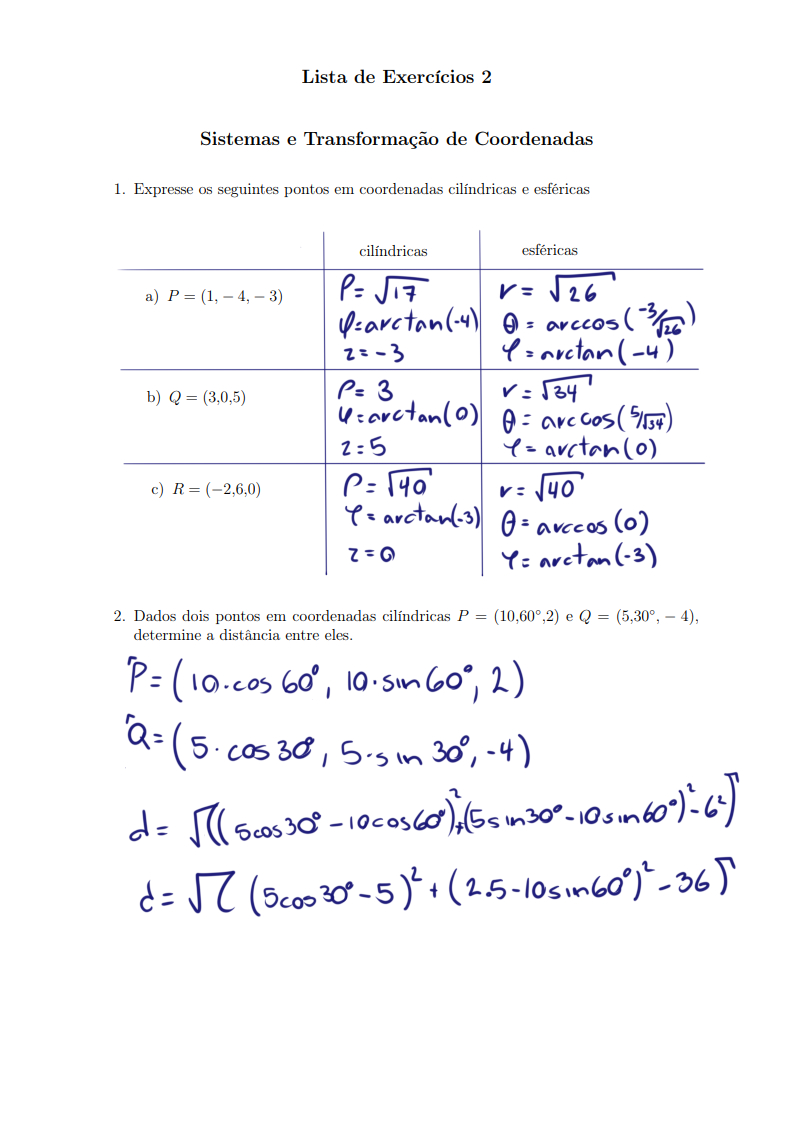 Lista de Exercícios 2
Sistemas e Transformação de Coordenadas
1. Expresse os seguintes pontos em coordenadas cilíndricas e esféricas
cilíndricas esféricas
a) P = (1, − 4, − 3)
ρ = √17
φ = arctan(-4)
z = -3
r = √26
θ = arccos(-3/√26)
φ = arctan(-4)
b) Q = (3,0,5)
ρ = 3
φ = arctan(0)
z = 5
r = √34
θ = arccos(5/√34)
φ = arctan(0)
c) R = (−2,6,0)
ρ = √40
φ = arctan(-3)
z = 0
r = √40
θ = arccos(0)
φ = arctan(-3)
2. Dados dois pontos em coordenadas cilíndricas P = (10,60°,2) e Q = (5,30°, − 4),
determine a distância entre eles.
P = (10·cos 60°, 10·sin 60°, 2)
Q = (5·cos 30°, 5·sin 30°, -4)
d = √((5cos30° - 10cos60°)² + (5sin30° - 10sin60°)² - 6²)
d = √((5cos30° - 5)² + (2.5 - 10sin60°)² - 36)